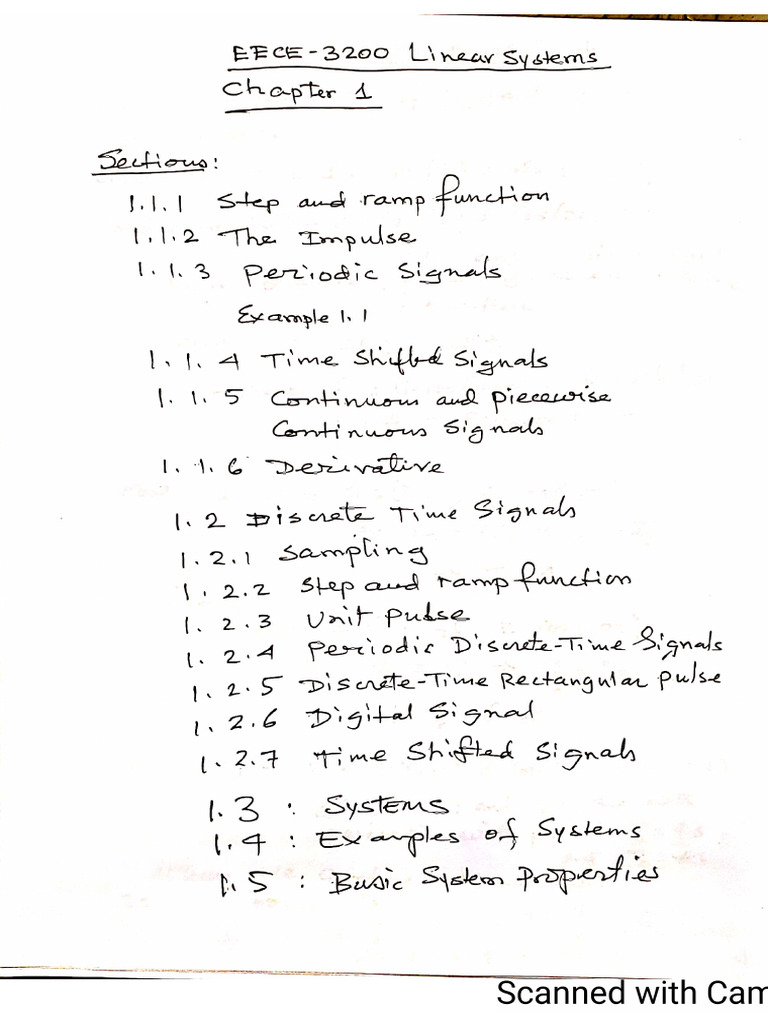 EECE-3200 Linear Systems
Chapter 1
Sections:
1.1.1 Step and ramp function
1.1.2 The Impulse
1.1.3 Periodic Signals
Example 1.1
1.1.4 Time Shifted Signals
1.1.5 Continuous and piecewise
Continuous Signals
1.1.6 Derivative
1.2 Discrete Time Signals
1.2.1 Sampling
1.2.2 Step and ramp function
1.2.3 Unit pulse
1.2.4 Periodic Discrete-Time Signals
1.2.5 Discrete-Time Rectangular pulse
1.2.6 Digital Signal
1.2.7 Time Shifted Signals
1.3 : Systems
1.4 : Examples of Systems
1.5 : Basic System Properties
Scanned with Cam